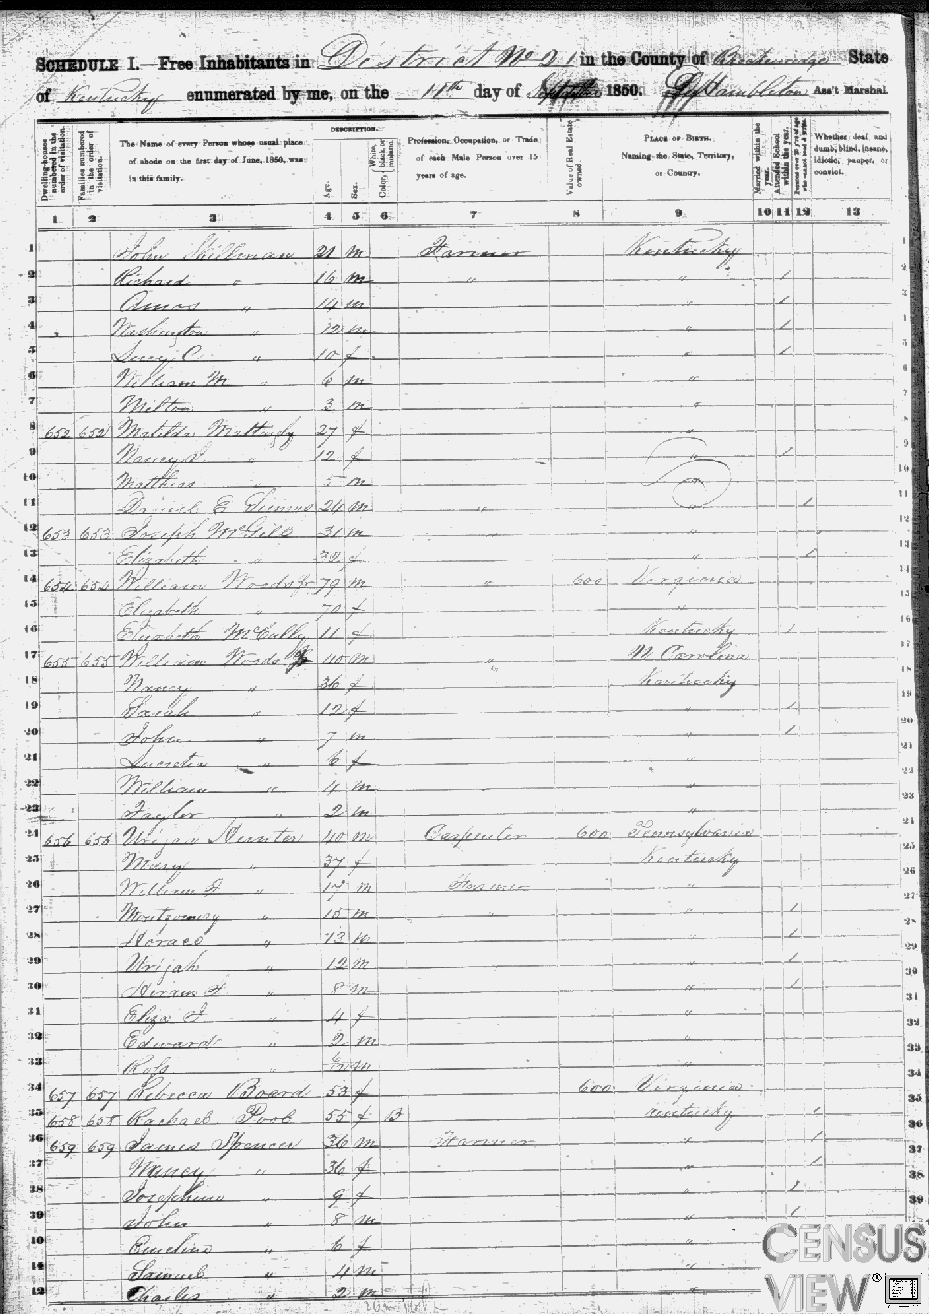 SCHEDULE I.—Free Inhabitants in District No 21 in the County of Breckenridge State
of Kentucky enumerated by me, on the 11th day of September 1850. Hambleton Ass't Marshal.
Dwelling-houses numbered in the order of visitation.
Families numbered in the order of visitation.
The Name of every Person whose usual place of abode on the first day of June, 1850, was in this family.
DESCRIPTION.
Age.
Sex.
Color, White, black, or mulatto.
Profession, Occupation, or Trade of each Male Person over 15 years of age.
Value of Real Estate owned.
PLACE OF BIRTH. Naming the State, Territory, or Country.
Married within the year.
Attended School within the year.
Persons over 20 years of age who cannot read & write.
Whether deaf and dumb, blind, insane, idiotic, pauper, or convict.
1 2 3 4 5 6 7 8 9 10 11 12 13
1 John Skillman 21 m Farmer Kentucky 1
2 Richard " 16 m " " 1 2
3 Amos " 14 m " 1 3
4 Washington " 12 m " 1 4
5 C. " 10 f " 1 5
6 William M " 6 m "
7 Milton " 3 m "
8 652 652 Matilda 27 f
9 Nancy " 12 f " 1 9
10 Mathias " 5 m " 10
11 Daniel E 24 m " " 1 11
12 653 653 Joseph 31 m " " 12
13 Elizabeth " f " 1 13
14 654 654 William Woods 79 m " 600 Virginia
15 Elizabeth " 70 f "
16 Elizabeth McCully 11 f Kentucky 1
17 655 655 William Woods 40 m " N Carolina
18 Nancy " 36 f Kentucky
19 Sarah " 12 f " 1
20 John " 7 m " 1 20
21 Lucretia " 6 f " 21
22 William " 4 m "
23 Taylor " 2 m "
24 656 656 Urijah Hunter 40 m Carpenter 600 Pennsylvania
25 Mary " 37 f Kentucky 25
26 William " 17 m Farmer "
27 Montgomery " 15 m " " 1
28 Horace " 13 m " 1 28
29 Urijah " 12 m " 1 29
30 Hiram " 8 m " 1 30
31 Eliza J " 4 f " 31
32 Edward " 2 m " 32
33 Ross " m " 33
34 657 657 Rebecca Board 53 f 600 Virginia 34
35 658 658 Rachael 55 f B Kentucky 1 35
36 659 659 James Spencer 36 m Farmer " 1 36
37 Nancy " 36 f " 1 37
38 Josephine " 9 f " 1 38
39 John " 8 m " 1 39
Emeline " 6 f "
Samuel " 4 m "
Charles " 2 m "
CENSUS
VIEW®